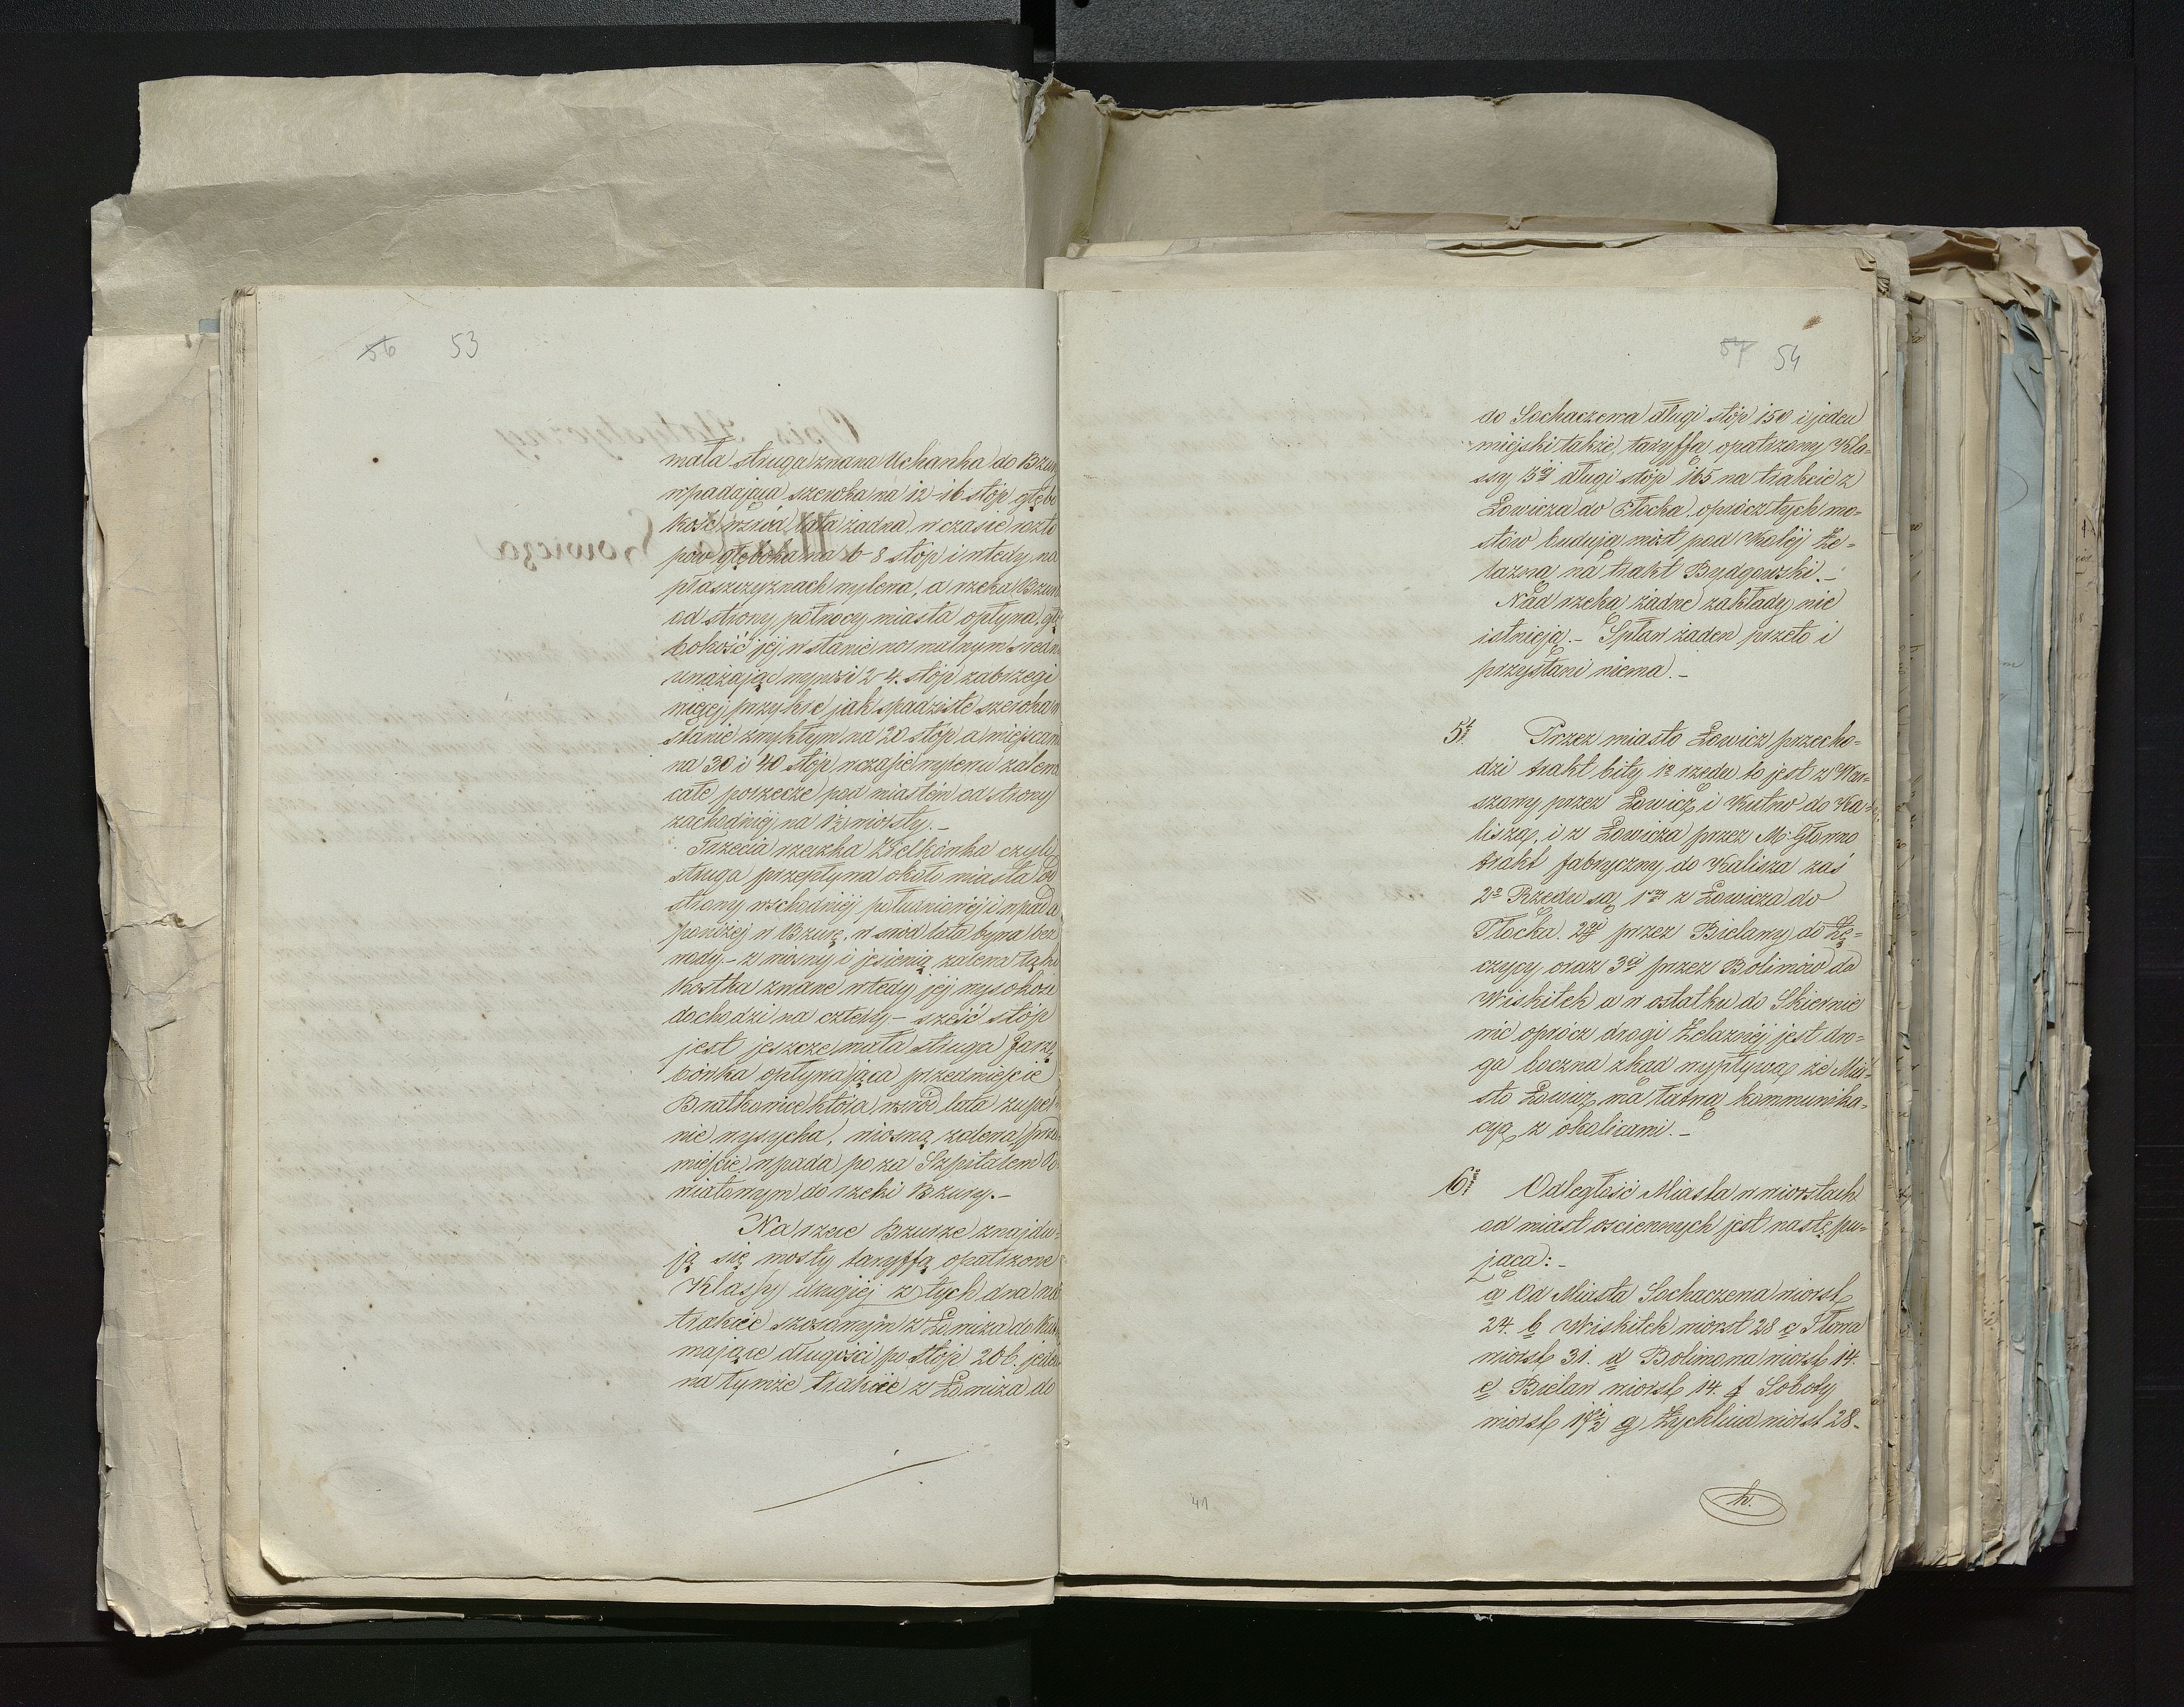 56 53
mała struga znana Uchanka do Bzur
wpadająca szeroka na 12-16 stóp głębo
kość wśród lata żadna w czasie rozto
pów głęboka na 6-8 stóp i wtedy na
płaszczyznach wylewa, a rzeka Bzur
od strony północy miasta opływa, głę
bokość jej w stanie normalnym średn
uważając wynosi 2-4. stóp zabrzegi
niżej przykre jak spadziste szeroka w
stanie zwykłym na 20 stóp a miejscam
na 30 i 40 stóp w czasie wylewu zalewa
całe porzecze pod miastem od strony
zachodniej na 1½ wiorsty.-
Trzecia rzeczka Zielkówka czyli
struga przepływa około miasta od
strony wschodniej południowej i wpada
poniżej w Bzurę, w śród lata bywa bez
wody.- z wiosny i jesienią zalewa łąki
Kostka zwane wtedy jej wysokość
dochodzi na cztery - sześć stóp
jest jeszcze mała struga Jarzę
bówka opływająca przedmieście
Bratkowice która wśród lata zupeł
nie wysycha, wiosną zalewa przed
mieście wpada po za Szpitalem Po
wiatowym do rzeki Bzury.-
Na rzece Bzurze znajdu-
ją się mosty taryffą opatrzone
Klassy drugiej z tych dwa na
trakcie szosowym z Łowicza do Kut
mające długości po stóp 206. jeden
na tymże trakcie z Łowicza do
57 54
do Sochaczewa długi stóp 150 i jeden
miejski także taryffą opatrzony Kla-
ssy 3éj długi stóp 165 na trakcie z
Łowicza do Płocka, oprócz tych mo-
stów budują most pod Kolej Że-
lazną na trakt Bydgowski.-
Nad rzeką żadne zakłady nie
istnieją.- Spław żaden przeto i
przystani niema.-
5. Przez miasto Łowicz przecho-
dzi trakt bity 1o rzędu to jest z War-
szawy przez Łowicz i Kutno do Ka-
lisza, i z Łowicza przez M. Głowno
trakt fabryczny do Kalisza zaś
2o Rzędu są 1szy z Łowicza do
Płocka. 2gi przez Bielawy do Łę-
czycy oraz 3ci przez Bolimów do
Wiskitek a w ostatku do Skiernie
wic oprócz drogi Żelaznéj jest dro-
ga boczna zkąd wypływa że Mia-
sto Łowicz ma łatwą kommunika-
cyą z okolicami.-
6. Odległość Miasta w wiorstach
od miast ościennych jest następu-
jąca:-
a Od Miasta Sochaczewa wiorst
24. b Wiskitek wiorst 28 c Iłowa
wiorst 31. d Bolimowa wiorst 14.
e Bielaw wiorst 14. f Soboty
wiorst 17½ g Żychlina wiorst 28.
h.
41